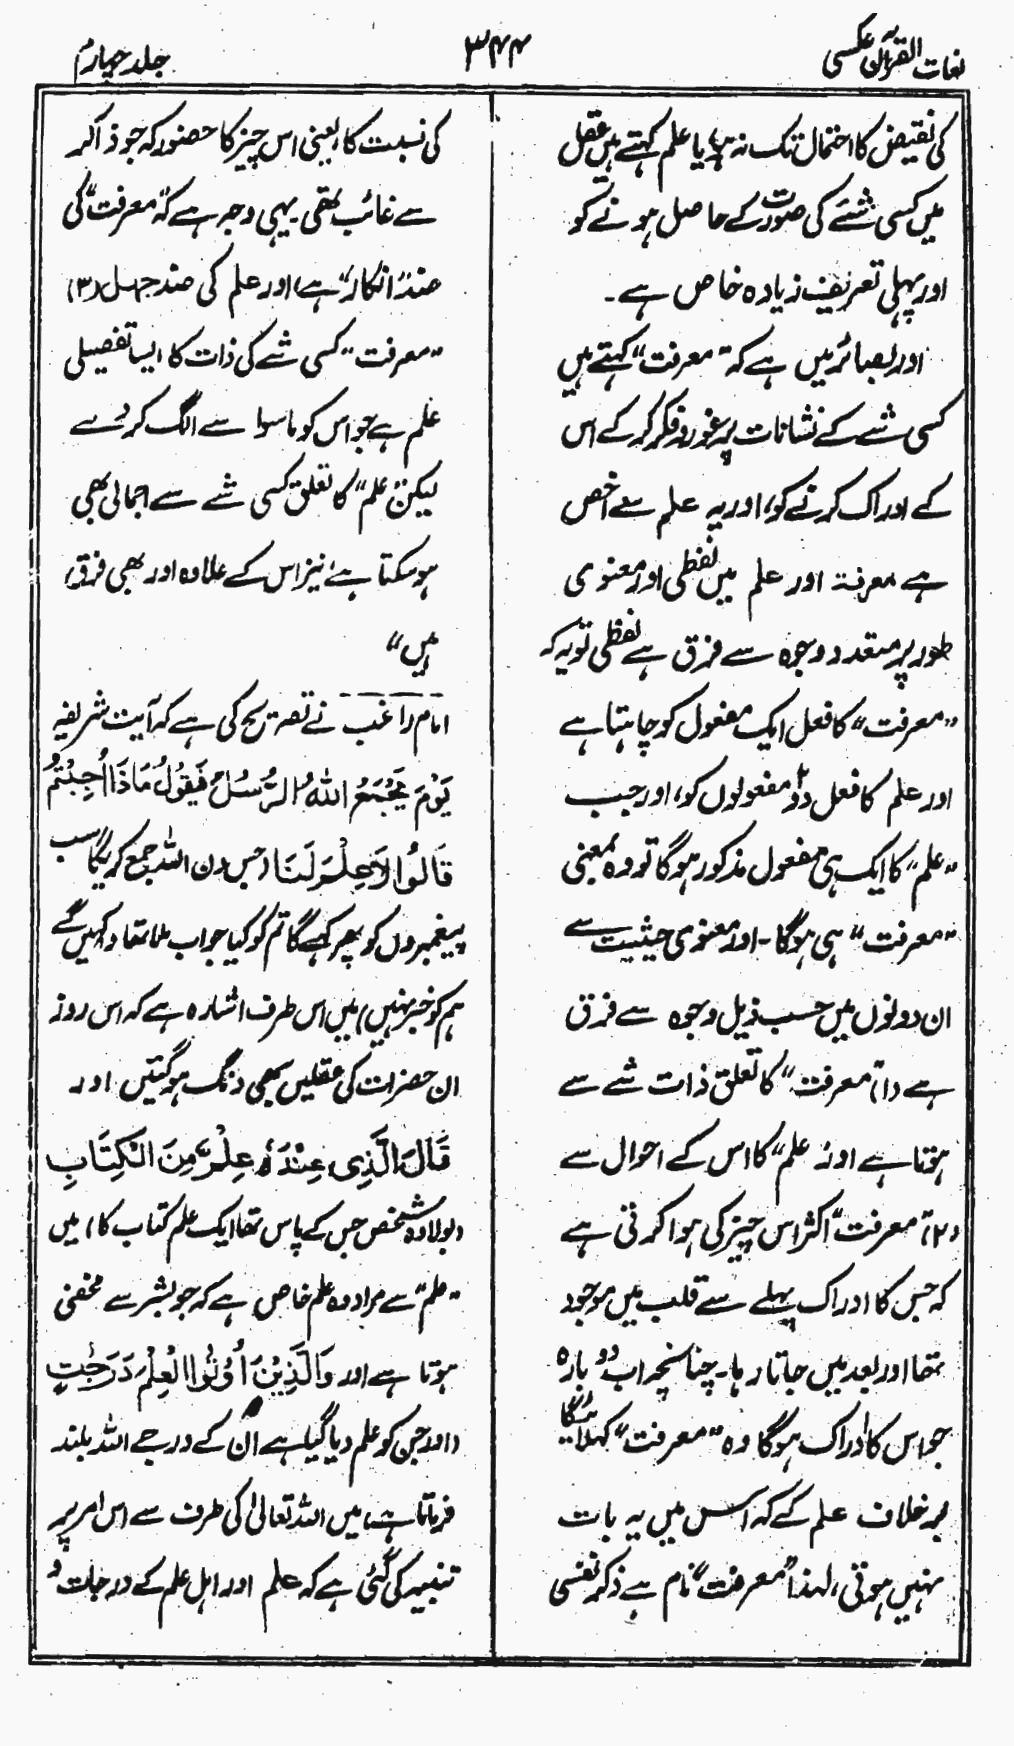 لغات القرآن عکسی
۳۴۴
جلد چہارم
کی نقیض کا احتمال تک نہ ہو یا علم کہتے ہیں عقل
میں کسی شئے کی صورت کے حاصل ہونے کو
اور پہلی تعریف زیادہ خاص ہے۔
اور بصائر میں ہے کہ "معرفت" کہتے ہیں
کسی شے کے نشانات پر غور و فکر کر کے اس
کے ادراک کرنے کو، اور یہ علم سے اخص
ہے معرفۃ اور علم میں لفظی اور معنوی
طور پر متعدد وجوہ سے فرق ہے لفظی تو یہ کہ
"معرفت" کا فعل ایک مفعول کو چاہتا ہے
اور علم کا فعل دو مفعولوں کو، اور جب
"علم" کا ایک ہی مفعول مذکور ہوگا تو وہ بمعنی
"معرفت" ہی ہوگا۔ اور معنوی حیثیت سے
ان دونوں میں حسب ذیل وجوہ سے فرق
ہے (۱) "معرفت" کا تعلق ذات شے سے
ہوتا ہے اور "علم" کا اس کے احوال سے
(۲) "معرفت" اکثر اس چیز کی ہوا کرتی ہے
کہ جس کا ادراک پہلے سے قلب میں موجود
تھا اور بعد میں جاتا رہا۔ چنانچہ اب دو بارہ
جو اس کا ادراک ہوگا وہ "معرفت" کہلائیگا
بر خلاف علم کے کہ اس میں یہ بات
نہیں ہوتی، لہذا "معرفت" نام ہے ذکر نفسی
کی نسبت کا، یعنی اس چیز کا حضور کہ جو ذاکر
سے غائب تھی۔ یہی وجہ ہے کہ "معرفت" کی
ضد "انکار" ہے، اور علم کی ضد جہل (۳)
"معرفت" کسی شے کی ذات کا ایسا تفصیلی
علم ہے جو اس کو ماسوا سے الگ کر دے
لیکن "علم" کا تعلق کسی شے سے اجمالی بھی
ہو سکتا ہے نیز اس کے علاوہ اور بھی فرق
ہیں"
امام راغب نے تصریح کی ہے کہ آیت شریفہ
يَوْمَ يَجْمَعُ اللهُ الرُّسُلَ فَيَقُولُ مَاذَا أُجِبْتُمْ
قَالُوا لَا عِلْمَ لَنَا (جس دن اللہ جمع کریگا سب
پیغمبروں کو پھر کہے گا تم کو کیا جواب ملا تھا وہ کہیں گے
ہم کو خبر نہیں) میں اس طرف اشارہ ہے کہ اس روز
ان حضرات کی عقلیں بھی دنگ ہوگئیں اور
قَالَ الَّذِي عِنْدَهٗ عِلْمٌ مِنَ الْكِتَابِ
(بولا وہ شخص جس کے پاس تھا ایک علم کتاب کا) میں
"علم" سے مراد وہ علم خاص ہے کہ جو بشر سے مخفی
ہوتا ہے اور وَالَّذِيْنَ أُوتُوا الْعِلْمَ دَرَجٰتٍ
(اور جن کو علم دیا گیا ہے ان کے درجے اللہ بلند
فرماتا ہے) میں اللہ تعالیٰ کی طرف سے اس امر پر
تنبیہ کی گئی ہے کہ علم اور اہل علم کے درجات و